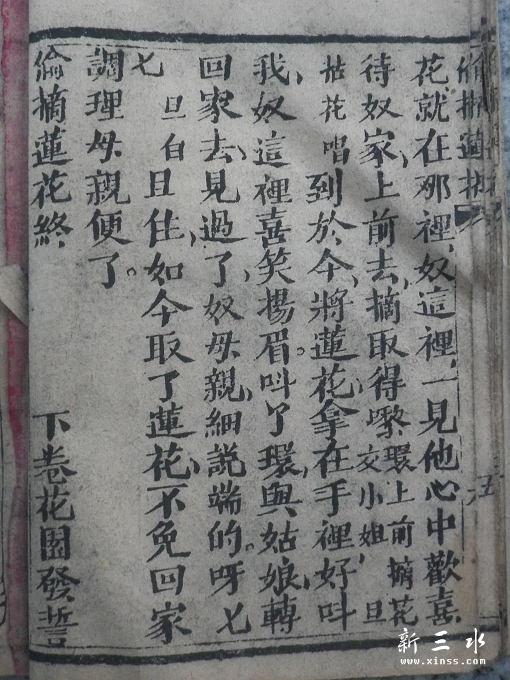 花就在那裡、奴這裡、一見他心中歡喜、
待奴家、上前去、摘取得嚟、環上前摘花交小姐、旦
拈花 唱 到於今、將蓮花、拿在手裡好叫
我、奴這裡喜笑揚眉。叫丫環與姑娘轉
回家去、見過了、奴母親、細説端的。呀乜
乜 旦白 且住、如今取了蓮花、不免回家
調理母親便了。
偷摘蓮花終、 下卷花園發誓
新三水
www.xinss.com